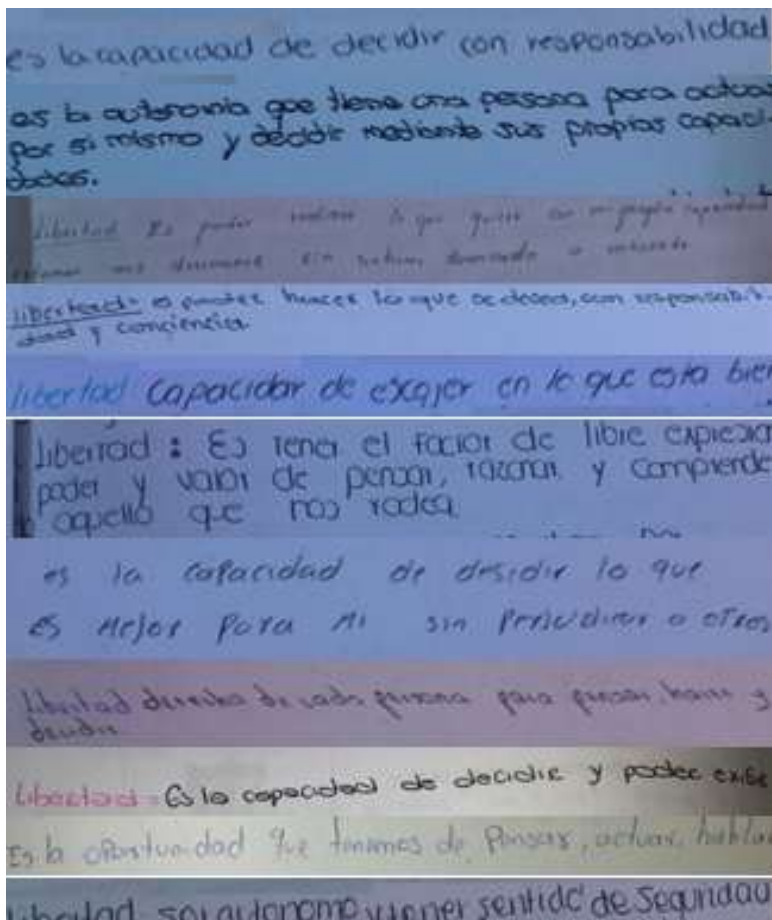 es la capacidad de decidir con responsabilidad
es la autonomia que tiene una persona para actuar
por si mismo y decidir mediante sus propias capaci-
dades.
libertad Es poder realizar lo que quiero con mi propia capacidad
sin
libertad= es poder hacer lo que se desea, con responsabili-
dad y conciencia.
libertad capacidar de escajer en lo que esta bien
libertad : Es tener el factor de libre expresar
poder y valor de pensar, razonar y comprende
aquello que nos rodea
es la capacidad de desidir lo que
es mejor para mi sin perjudicar a otros
libertad derecho de cada persona para pensar, hacer y
decidir
Libertad = Es la capacidad de decidir y poder
Es la oportunidad que tenemos de pensar, actuar, hablar
libertad ser autonomo y tener sentido de seguridad